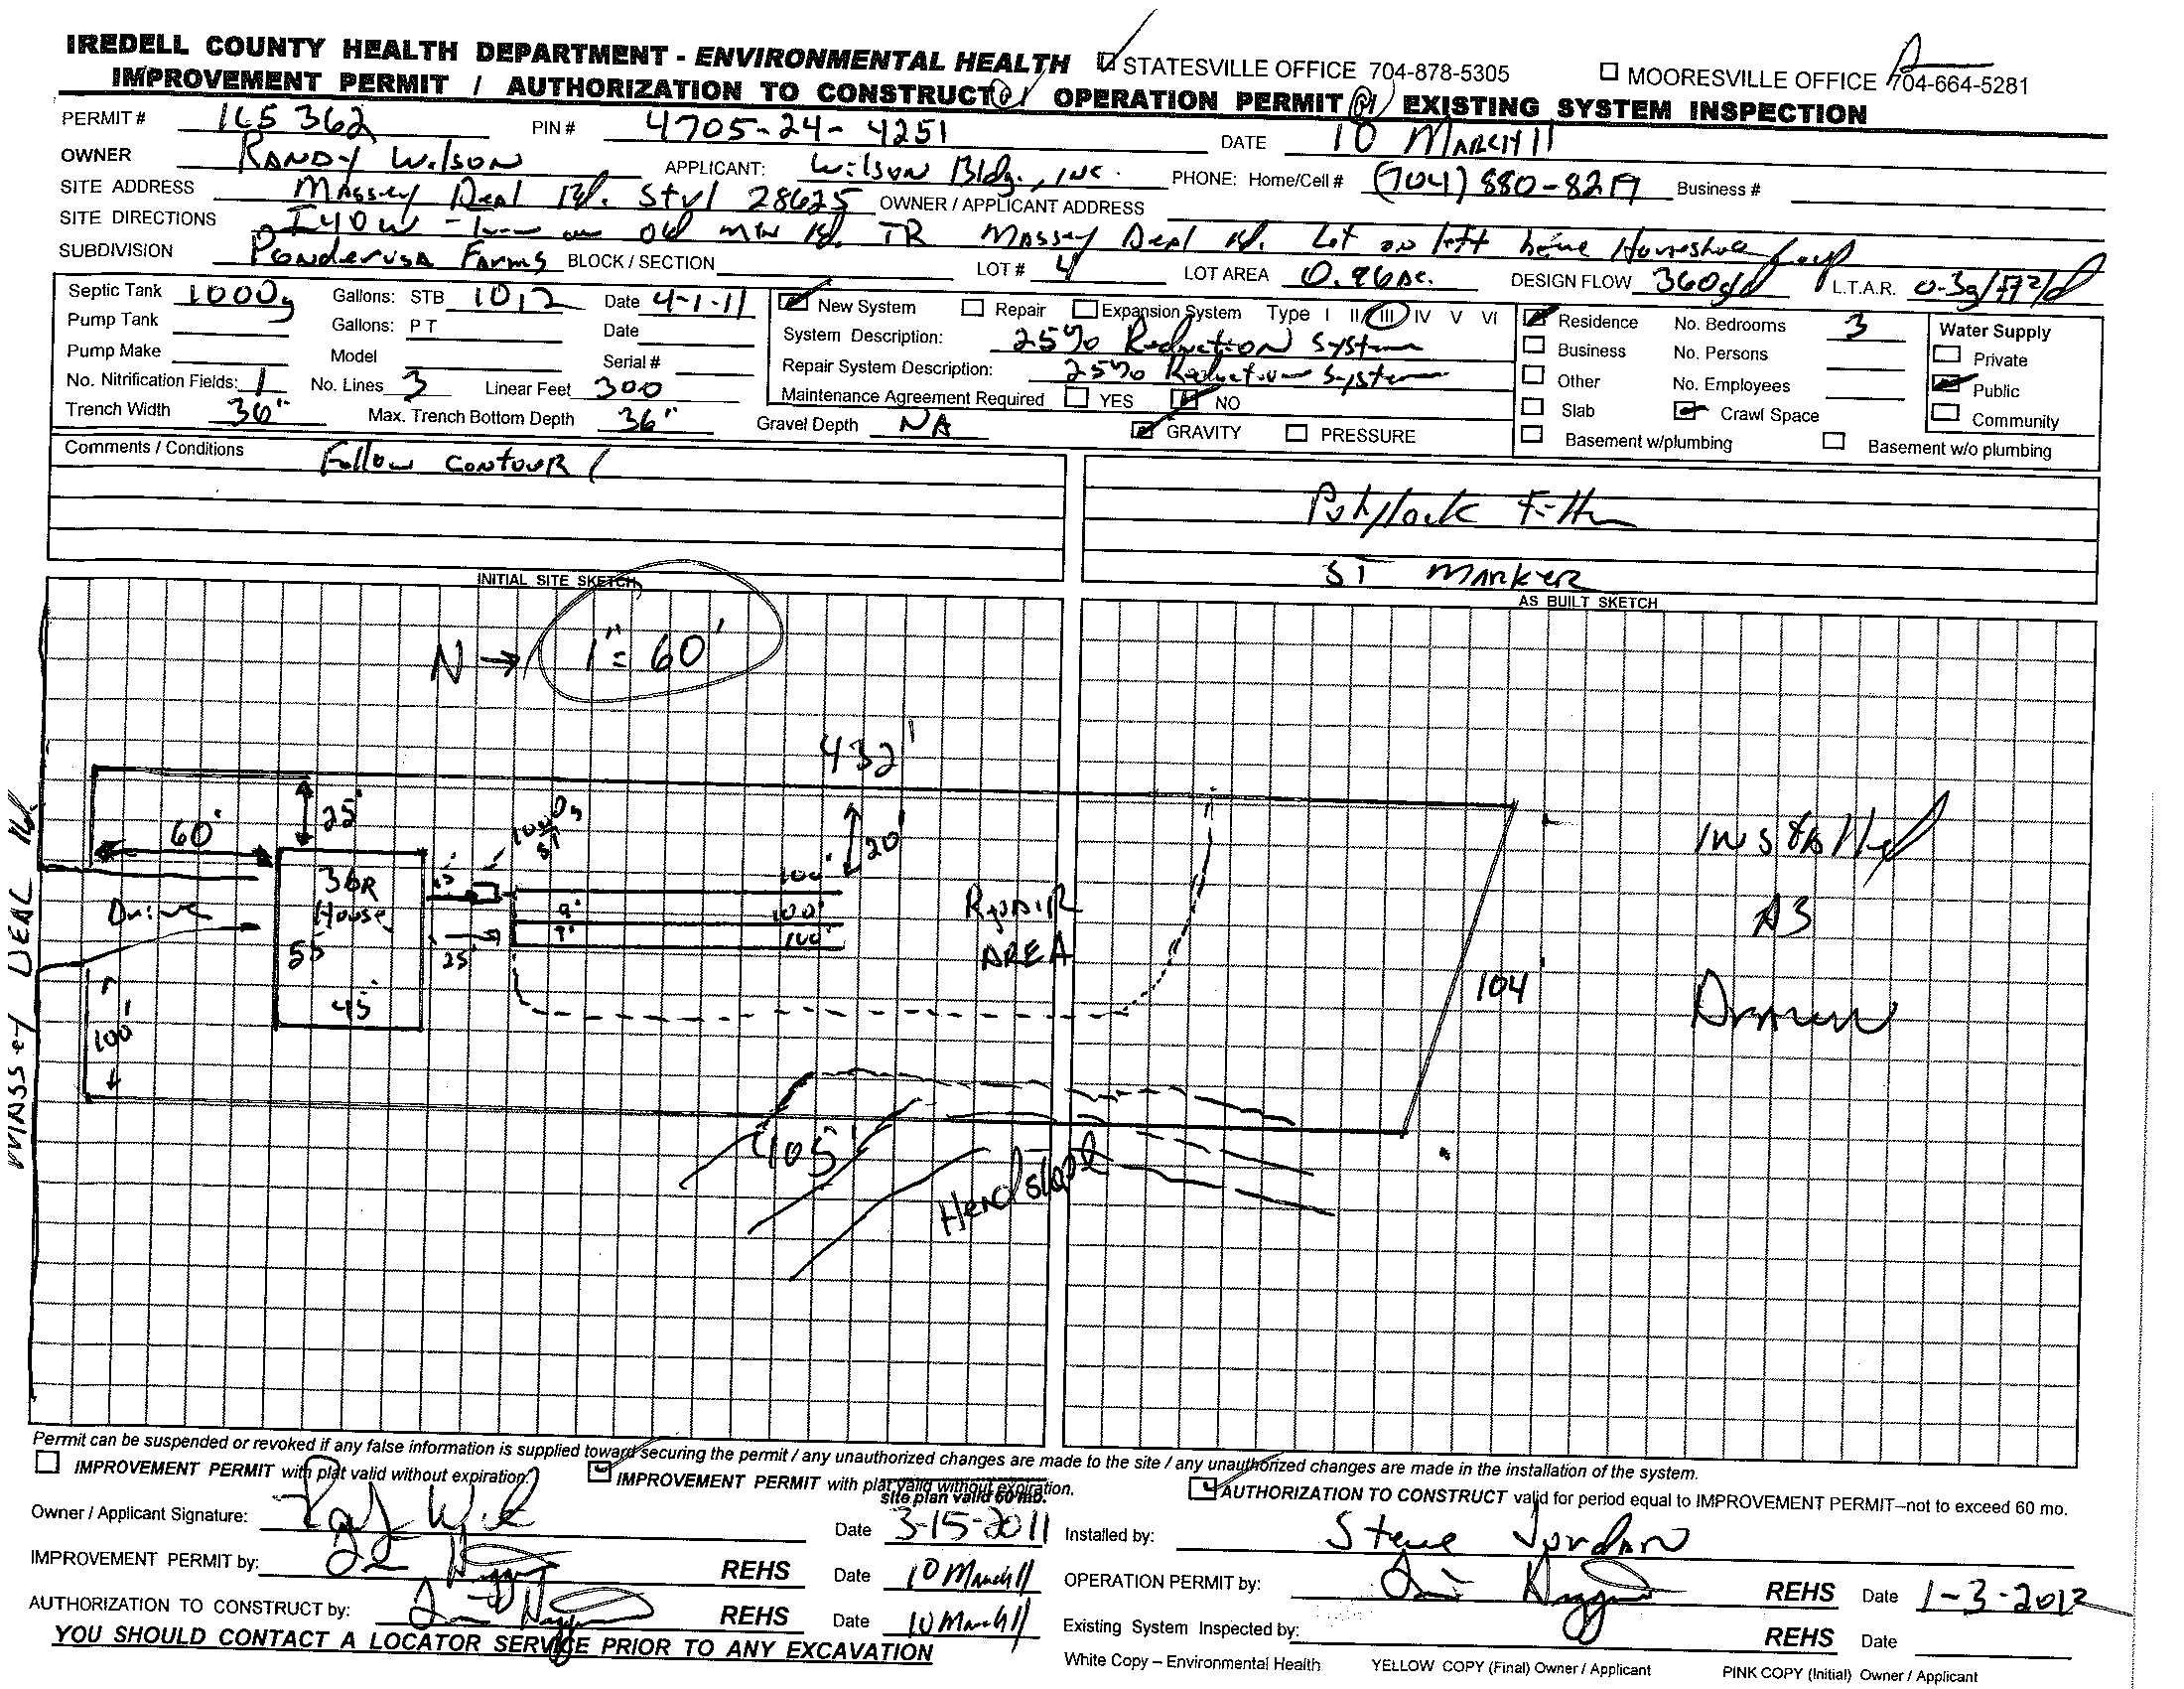 IREDELL COUNTY HEALTH DEPARTMENT - ENVIRONMENTAL HEALTH STATESVILLE OFFICE 704-878-5305 MOORESVILLE OFFICE 704-664-5281
IMPROVEMENT PERMIT / AUTHORIZATION TO CONSTRUCT / OPERATION PERMIT / EXISTING SYSTEM INSPECTION
PERMIT # 165362 PIN # 4705-24-4251 DATE 10 MARCH 11
OWNER RANDY WILSON APPLICANT: Wilson Bldg., INC. PHONE: Home/Cell # (704) 880-8219 Business #
SITE ADDRESS Massey Deal Rd. Stvl 28625 OWNER / APPLICANT ADDRESS
SITE DIRECTIONS I40W - on Old Mtn Rd. TR Massey Deal Rd. Lot on left Horseshoe Loop
SUBDIVISION Ponderosa Farms BLOCK / SECTION LOT # 4 LOT AREA 0.96 Ac. DESIGN FLOW 360g/d L.T.A.R. 0.3g/ft2/d
Septic Tank 1000g Gallons: STB 1012 Date 4-1-11 New System Repair Expansion System Type I II III IV V VI Residence No. Bedrooms 3 Water Supply
Pump Tank Gallons: PT Date System Description: 25% Reduction System Business No. Persons Private
Pump Make Model Serial # Repair System Description: 25% Reduction System Other No. Employees Public
No. Nitrification Fields: 1 No. Lines 3 Linear Feet 300 Maintenance Agreement Required YES NO Slab Crawl Space Community
Trench Width 36" Max. Trench Bottom Depth 36" Gravel Depth NA GRAVITY PRESSURE Basement w/plumbing Basement w/o plumbing
Comments / Conditions Follow Contour!
Polylock Filter
ST Marker
INITIAL SITE SKETCH AS BUILT SKETCH
N → 1" = 60'
432'
60' 25' 1000g ST 20'
3BR House 15' 100'
Drive 9' 100' Repair
9' 100' AREA
55' 25'
45'
100'
104'
Installed
AS
Drawn
405'
Headslope
DEAL Rd.
Permit can be suspended or revoked if any false information is supplied toward securing the permit / any unauthorized changes are made to the site / any unauthorized changes are made in the installation of the system.
IMPROVEMENT PERMIT with plat valid without expiration. IMPROVEMENT PERMIT with plat valid without expiration. site plan valid 60 mo. AUTHORIZATION TO CONSTRUCT valid for period equal to IMPROVEMENT PERMIT–not to exceed 60 mo.
Owner / Applicant Signature: Date 3-15-2011 Installed by: Steve Jordan
IMPROVEMENT PERMIT by: REHS Date 10 March 11 OPERATION PERMIT by: REHS Date 1-3-2012
AUTHORIZATION TO CONSTRUCT by: REHS Date 10 March 11 Existing System Inspected by: REHS Date
YOU SHOULD CONTACT A LOCATOR SERVICE PRIOR TO ANY EXCAVATION
White Copy – Environmental Health YELLOW COPY (Final) Owner / Applicant PINK COPY (Initial) Owner / Applicant